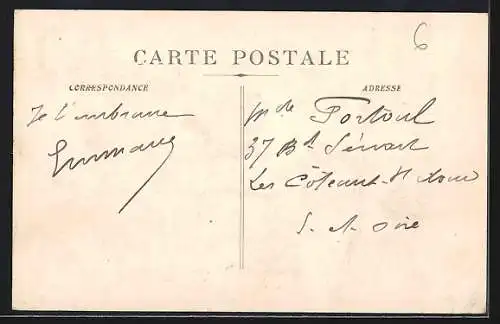 6
CARTE POSTALE
CORRESPONDANCE
ADRESSE
Je t'embrasse
Emma
Mde Portoul
37 Bd Sénart
Les Côteaux St Cloud
S. et Oise